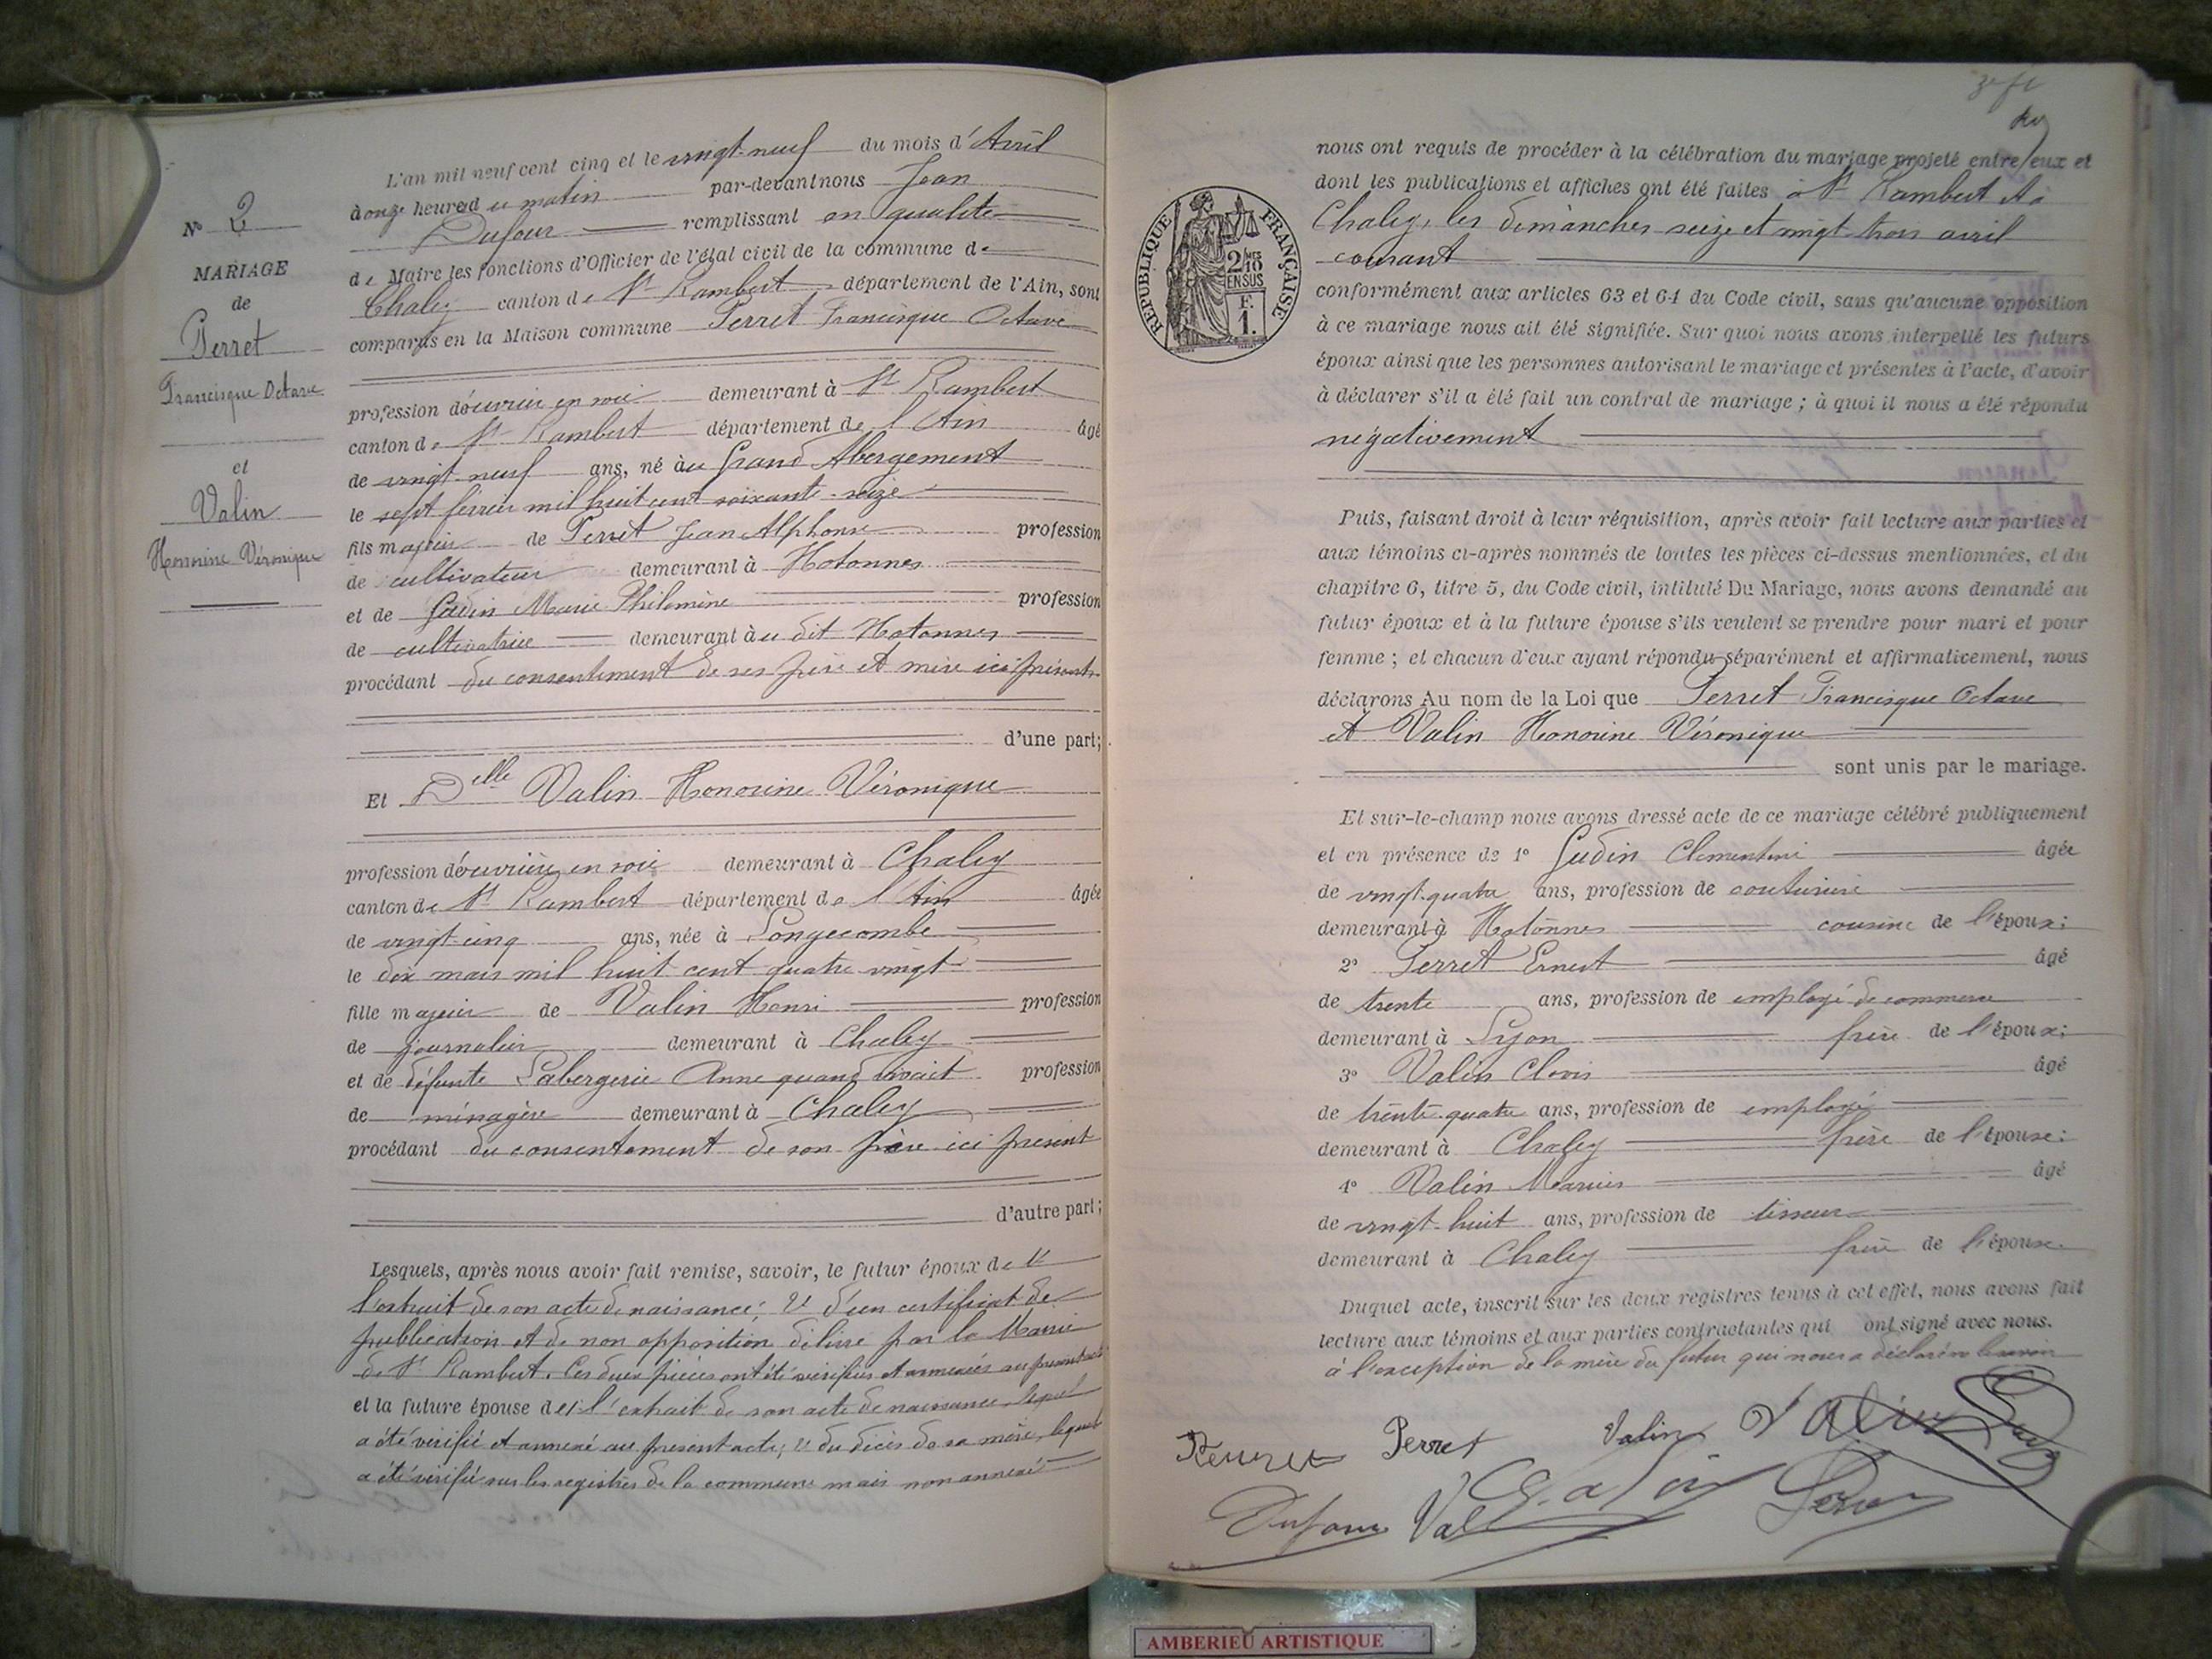 N° 2
MARIAGE
de
Perret
Francisque Octave
et
Valin
Honorine Véronique
L'an mil neuf cent cinq et le vingt-neuf du mois d'Avril
à onze heures du matin par-devant nous Jean
Dufour remplissant en qualité
de Maire les fonctions d'Officier de l'état civil de la commune de
Chaley canton de St Rambert département de l'Ain, sont
comparus en la Maison commune Perret Francisque Octave
profession d'ouvrier en soie demeurant à St Rambert
canton de St Rambert département de l'Ain âgé
de vingt-neuf ans, né au Grand Abergement
le sept février mil huit cent soixante-seize
fils majeur de Perret Jean Alphonse profession
de cultivateur demeurant à Hotonnes
et de Gudin Marie Philomène profession
de cultivatrice demeurant au dit Hotonnes
procédant du consentement de ses père et mère ici présents
d'une part;
Et Delle Valin Honorine Véronique
profession d'ouvrière en soie demeurant à Chaley
canton de St Rambert département de l'Ain âgée
de vingt-cinq ans, née à Longecombe
le dix mars mil huit cent quatre vingt
fille majeure de Valin Henri profession
de journalier demeurant à Chaley
et de défunte Labergerie Anne quand vivait profession
de ménagère demeurant à Chaley
procédant du consentement de son père ici présent
d'autre part;
Lesquels, après nous avoir fait remise, savoir, le futur époux de 1°
l'extrait de son acte de naissance; 2° d'un certificat de
publication et de non opposition délivré par la Mairie
de St Rambert. Ces deux pièces ont été vérifiées et annexées au présent acte
et la future épouse de 1° l'extrait de son acte de naissance lequel
a été vérifié et annexé au présent acte; 2° du décès de sa mère, lequel
a été vérifié sur les registres de la commune mais non annexé
RÉPUBLIQUE FRANÇAISE
2/10
EN SUS
F.
1.
nous ont requis de procéder à la célébration du mariage projeté entre eux et
dont les publications et affiches ont été faites à St Rambert et à
Chaley, les dimanches seize et vingt-trois avril
courant
conformément aux articles 63 et 64 du Code civil, sans qu'aucune opposition
à ce mariage nous ait été signifiée. Sur quoi nous avons interpellé les futurs
époux ainsi que les personnes autorisant le mariage et présentes à l'acte, d'avoir
à déclarer s'il a été fait un contrat de mariage; à quoi il nous a été répondu
négativement
Puis, faisant droit à leur réquisition, après avoir fait lecture aux parties et
aux témoins ci-après nommés de toutes les pièces ci-dessus mentionnées, et du
chapitre 6, titre 5, du Code civil, intitulé Du Mariage, nous avons demandé au
futur époux et à la future épouse s'ils veulent se prendre pour mari et pour
femme; et chacun d'eux ayant répondu séparément et affirmativement, nous
déclarons Au nom de la Loi que Perret Francisque Octave
et Valin Honorine Véronique
sont unis par le mariage.
Et sur-le-champ nous avons dressé acte de ce mariage célébré publiquement
et en présence de 1° Gudin Clementine âgée
de vingt-quatre ans, profession de couturière
demeurant à Hotonnes cousine de l'époux;
2° Perret Ernest âgé
de trente ans, profession de employé de commerce
demeurant à Lyon frère de l'époux;
3° Valin Clovis âgé
de trente-quatre ans, profession de employé
demeurant à Chaley frère de l'épouse;
4° Valin Marius âgé
de vingt-huit ans, profession de tisseur
demeurant à Chaley frère de l'épouse.
Duquel acte, inscrit sur les deux registres tenus à cet effet, nous avons fait
lecture aux témoins et aux parties contractantes qui ont signé avec nous.
à l'exception de la mère du futur qui nous a déclaré ne le savoir
Perret Valin Valin
Dufour
AMBERIEU ARTISTIQUE